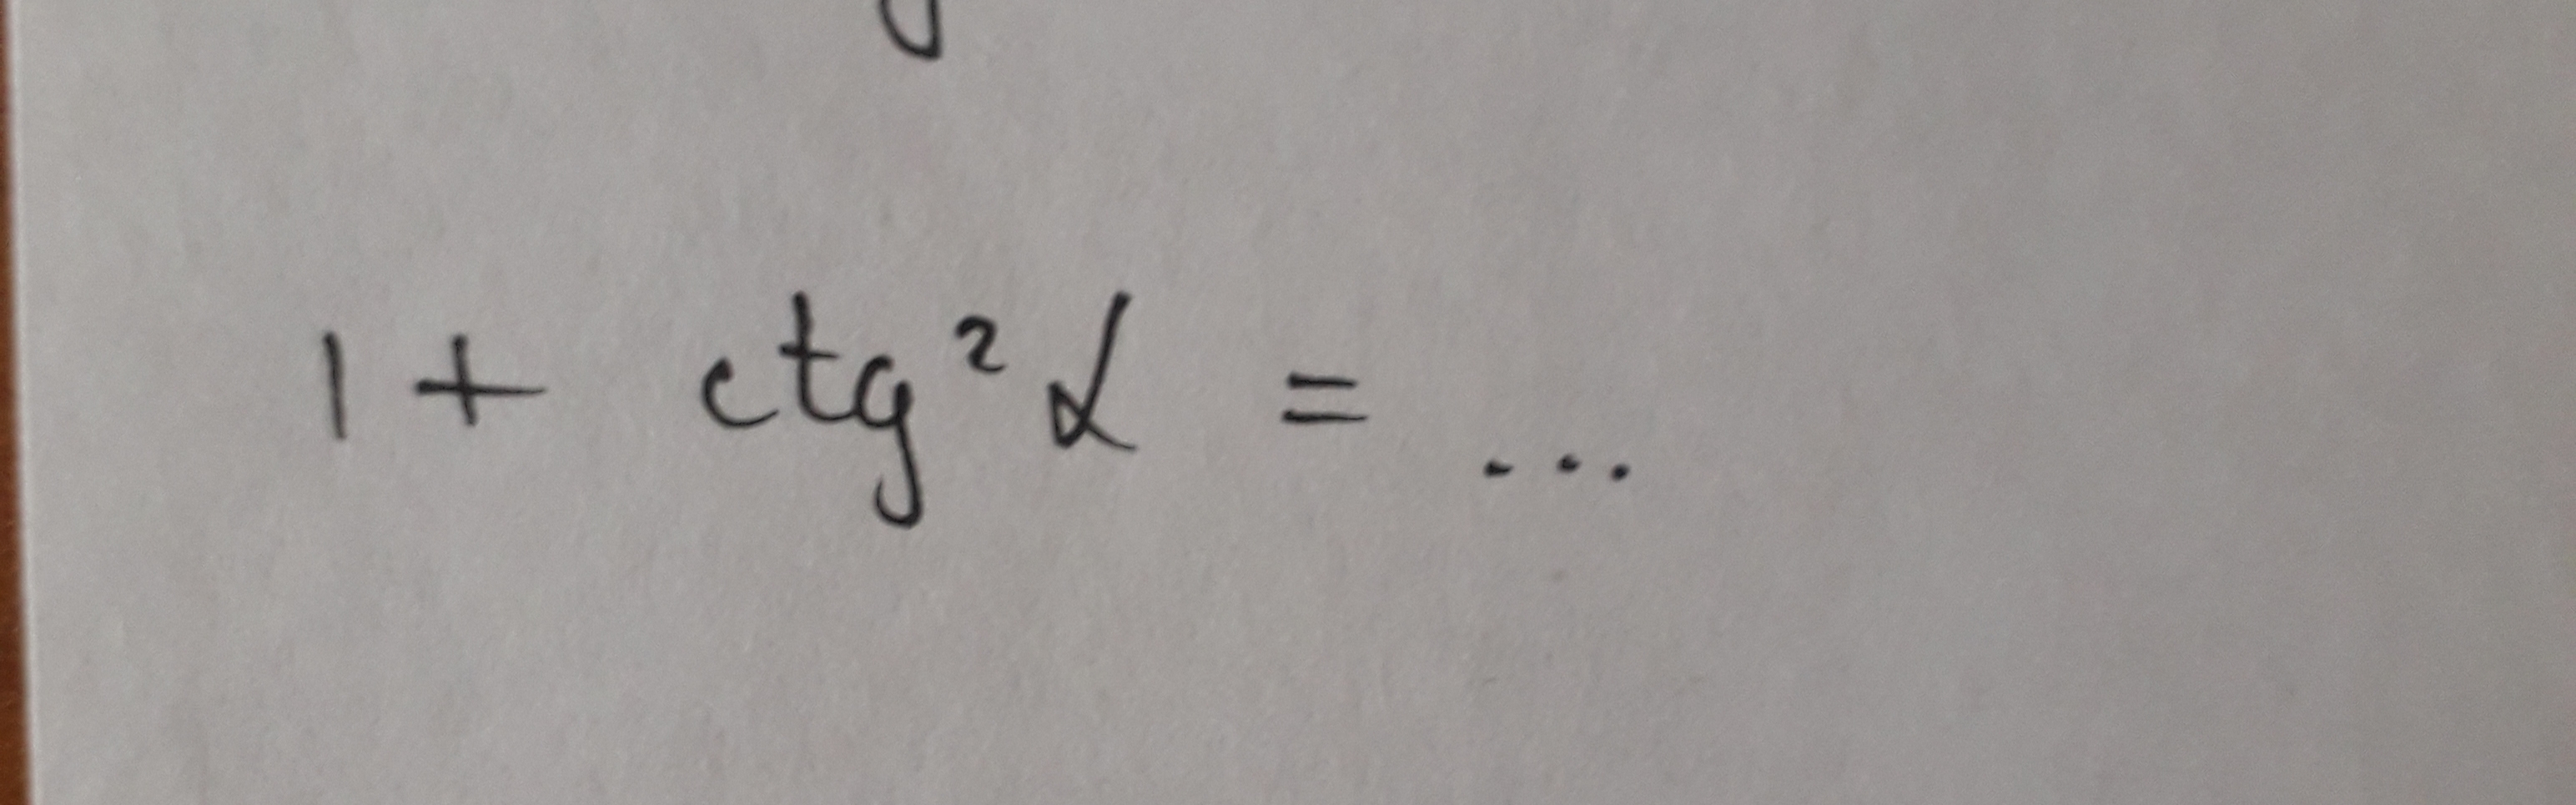 1 + ctg² α = ...